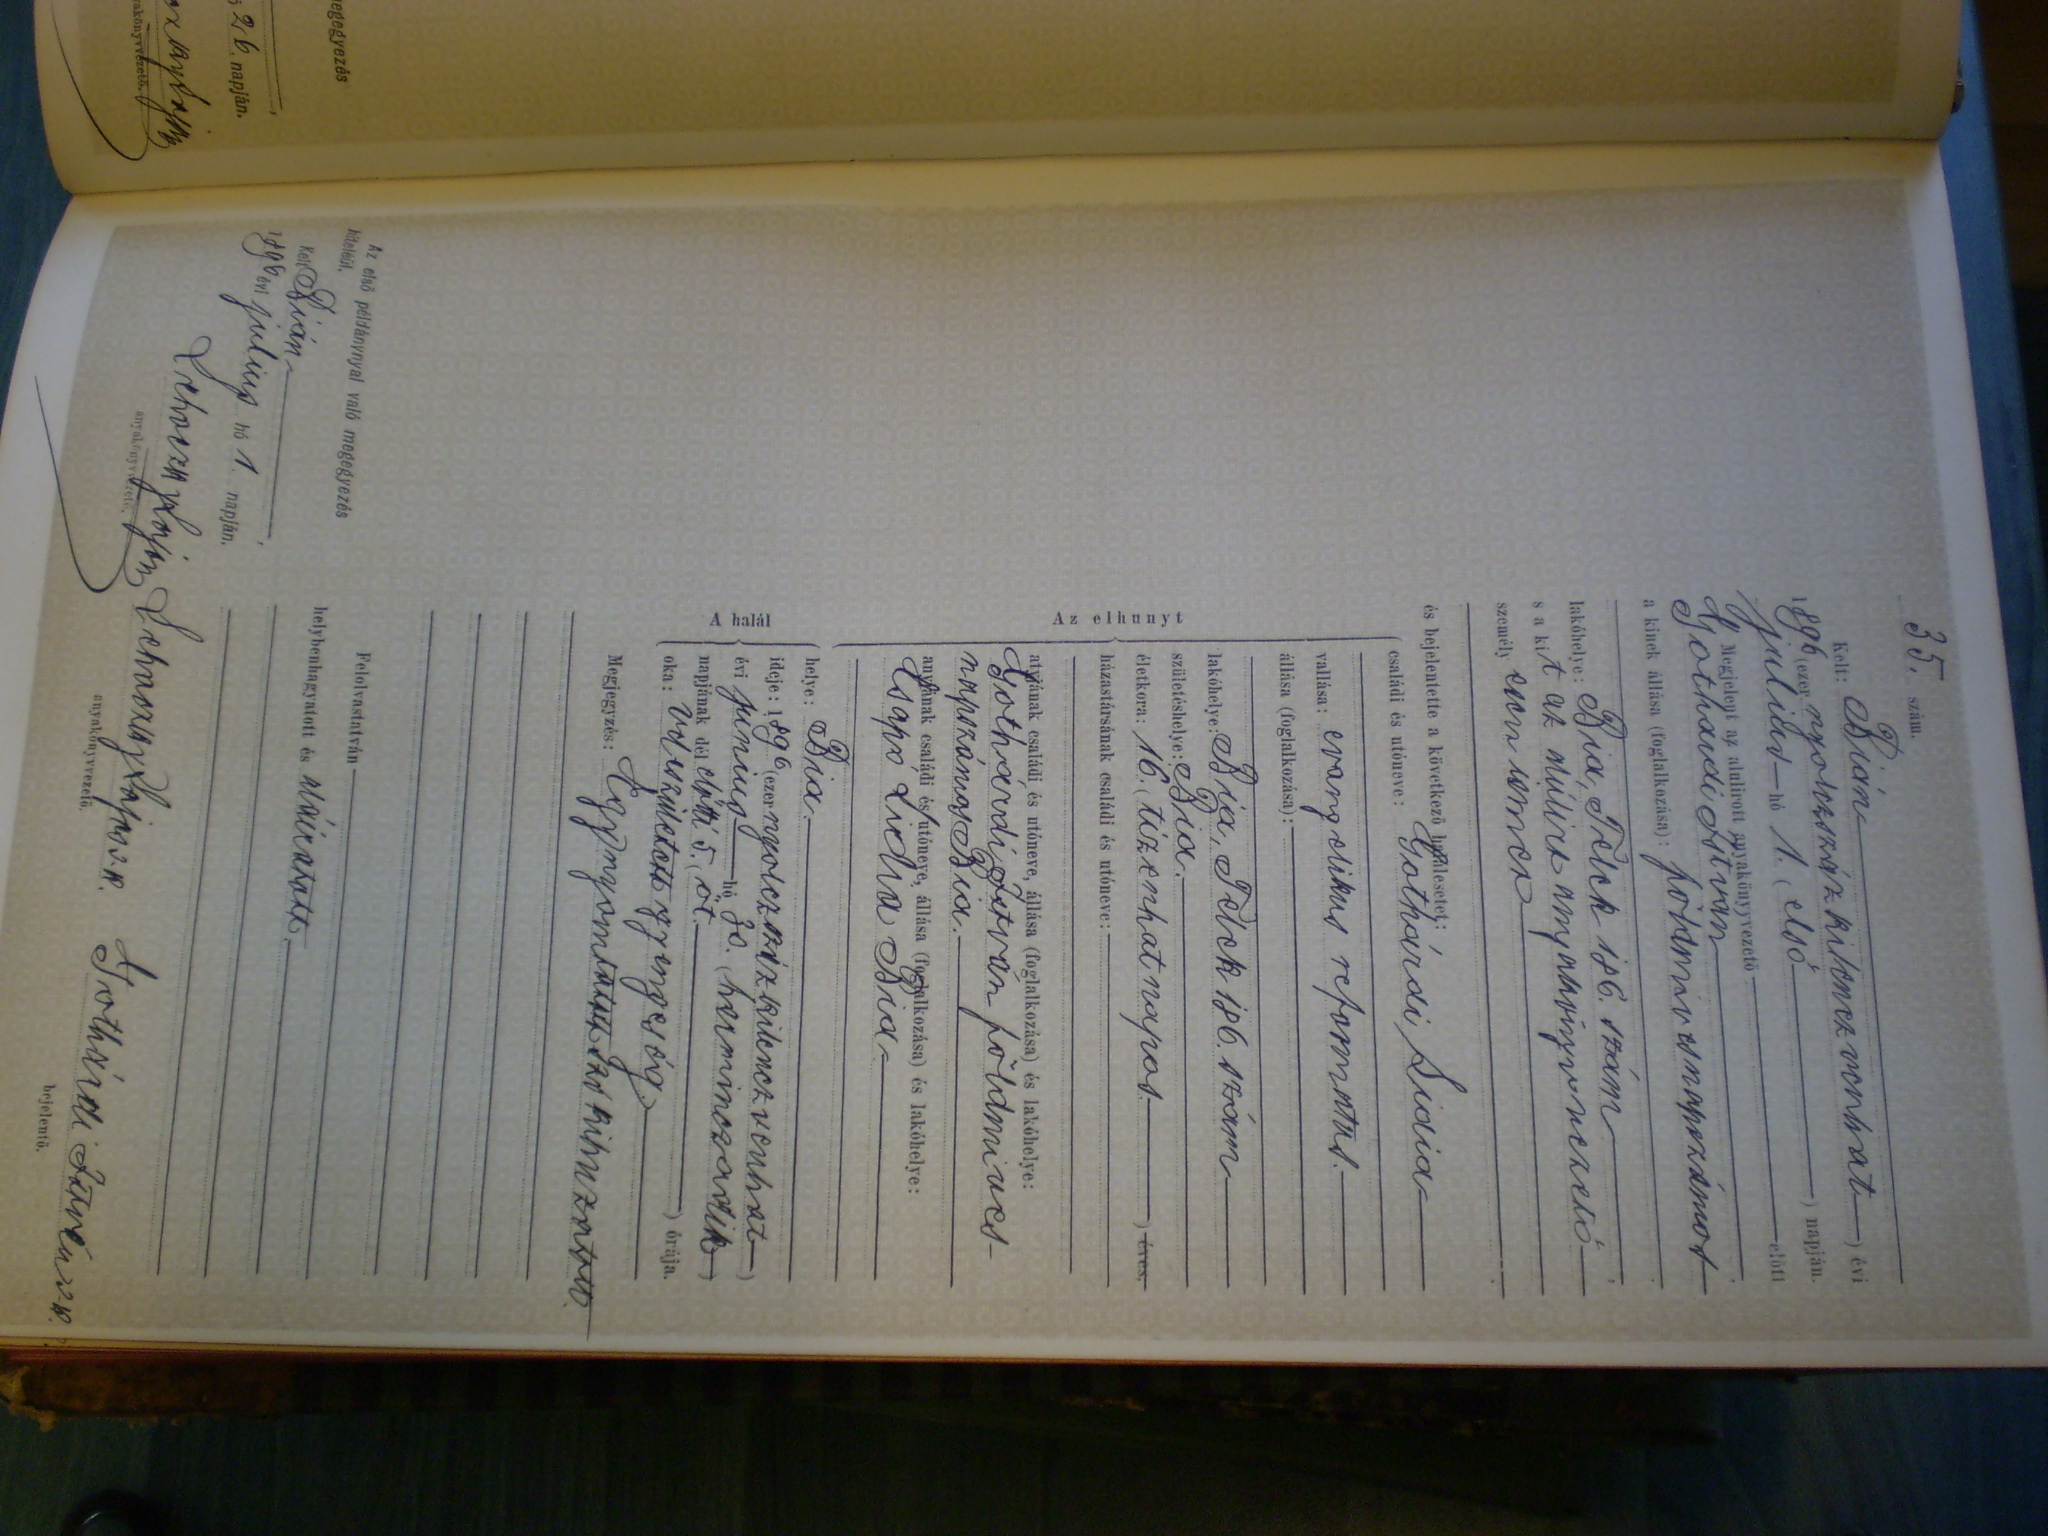 megegyezés
26. napján.
35. szám.
Kelt: Bián
1896 (ezer nyolczszáz kilenczvenhat) évi
julius hó 1. (első) napján.
Megjelent az alulirott anyakönyvvezető előtt
Gothárdi István
a kinek állása (foglalkozása): földmives napszámos
lakóhelye: Bia, Telek 186. szám
s a kit az alulirt anyakönyvvezető
személyesen ismer
és bejelentette a következő halálesetet:
Az elhunyt
családi és utóneve: Gothárdi Lidia
vallása: evangelikus reformatus.
állása (foglalkozása):
lakóhelye: Bia, Telek 186. szám
születéshelye: Bia.
életkora: 16. (tizenhat napos) éves.
házastársának családi és utóneve:
atyjának családi és utóneve, állása (foglalkozása) és lakóhelye:
Gothárdi István földmives-
napszámos Bia.
anyjának családi és utóneve, állása (foglalkozása) és lakóhelye:
Csapó Lidia Bia
A halál
helye: Bia.
ideje: 1896 (ezer nyolczszáz kilenczvenhat)
évi junius hó 30. (harminczadik)
napjának dél előtti 5. (öt.) órája.
oka: vel született gyengeség.
Megjegyzés: Egy nyomtatott szó kihuzatott.
Felolvastatván
helybenhagyatott és aláiratott.
Az első példánynyal való megegyezés
hiteléül.
Kelt Bián
1896 évi julius hó 1. napján.
anyakönyvvezető.
anyakönyvvezető.
Gothárdi István s.k.
bejelentő.